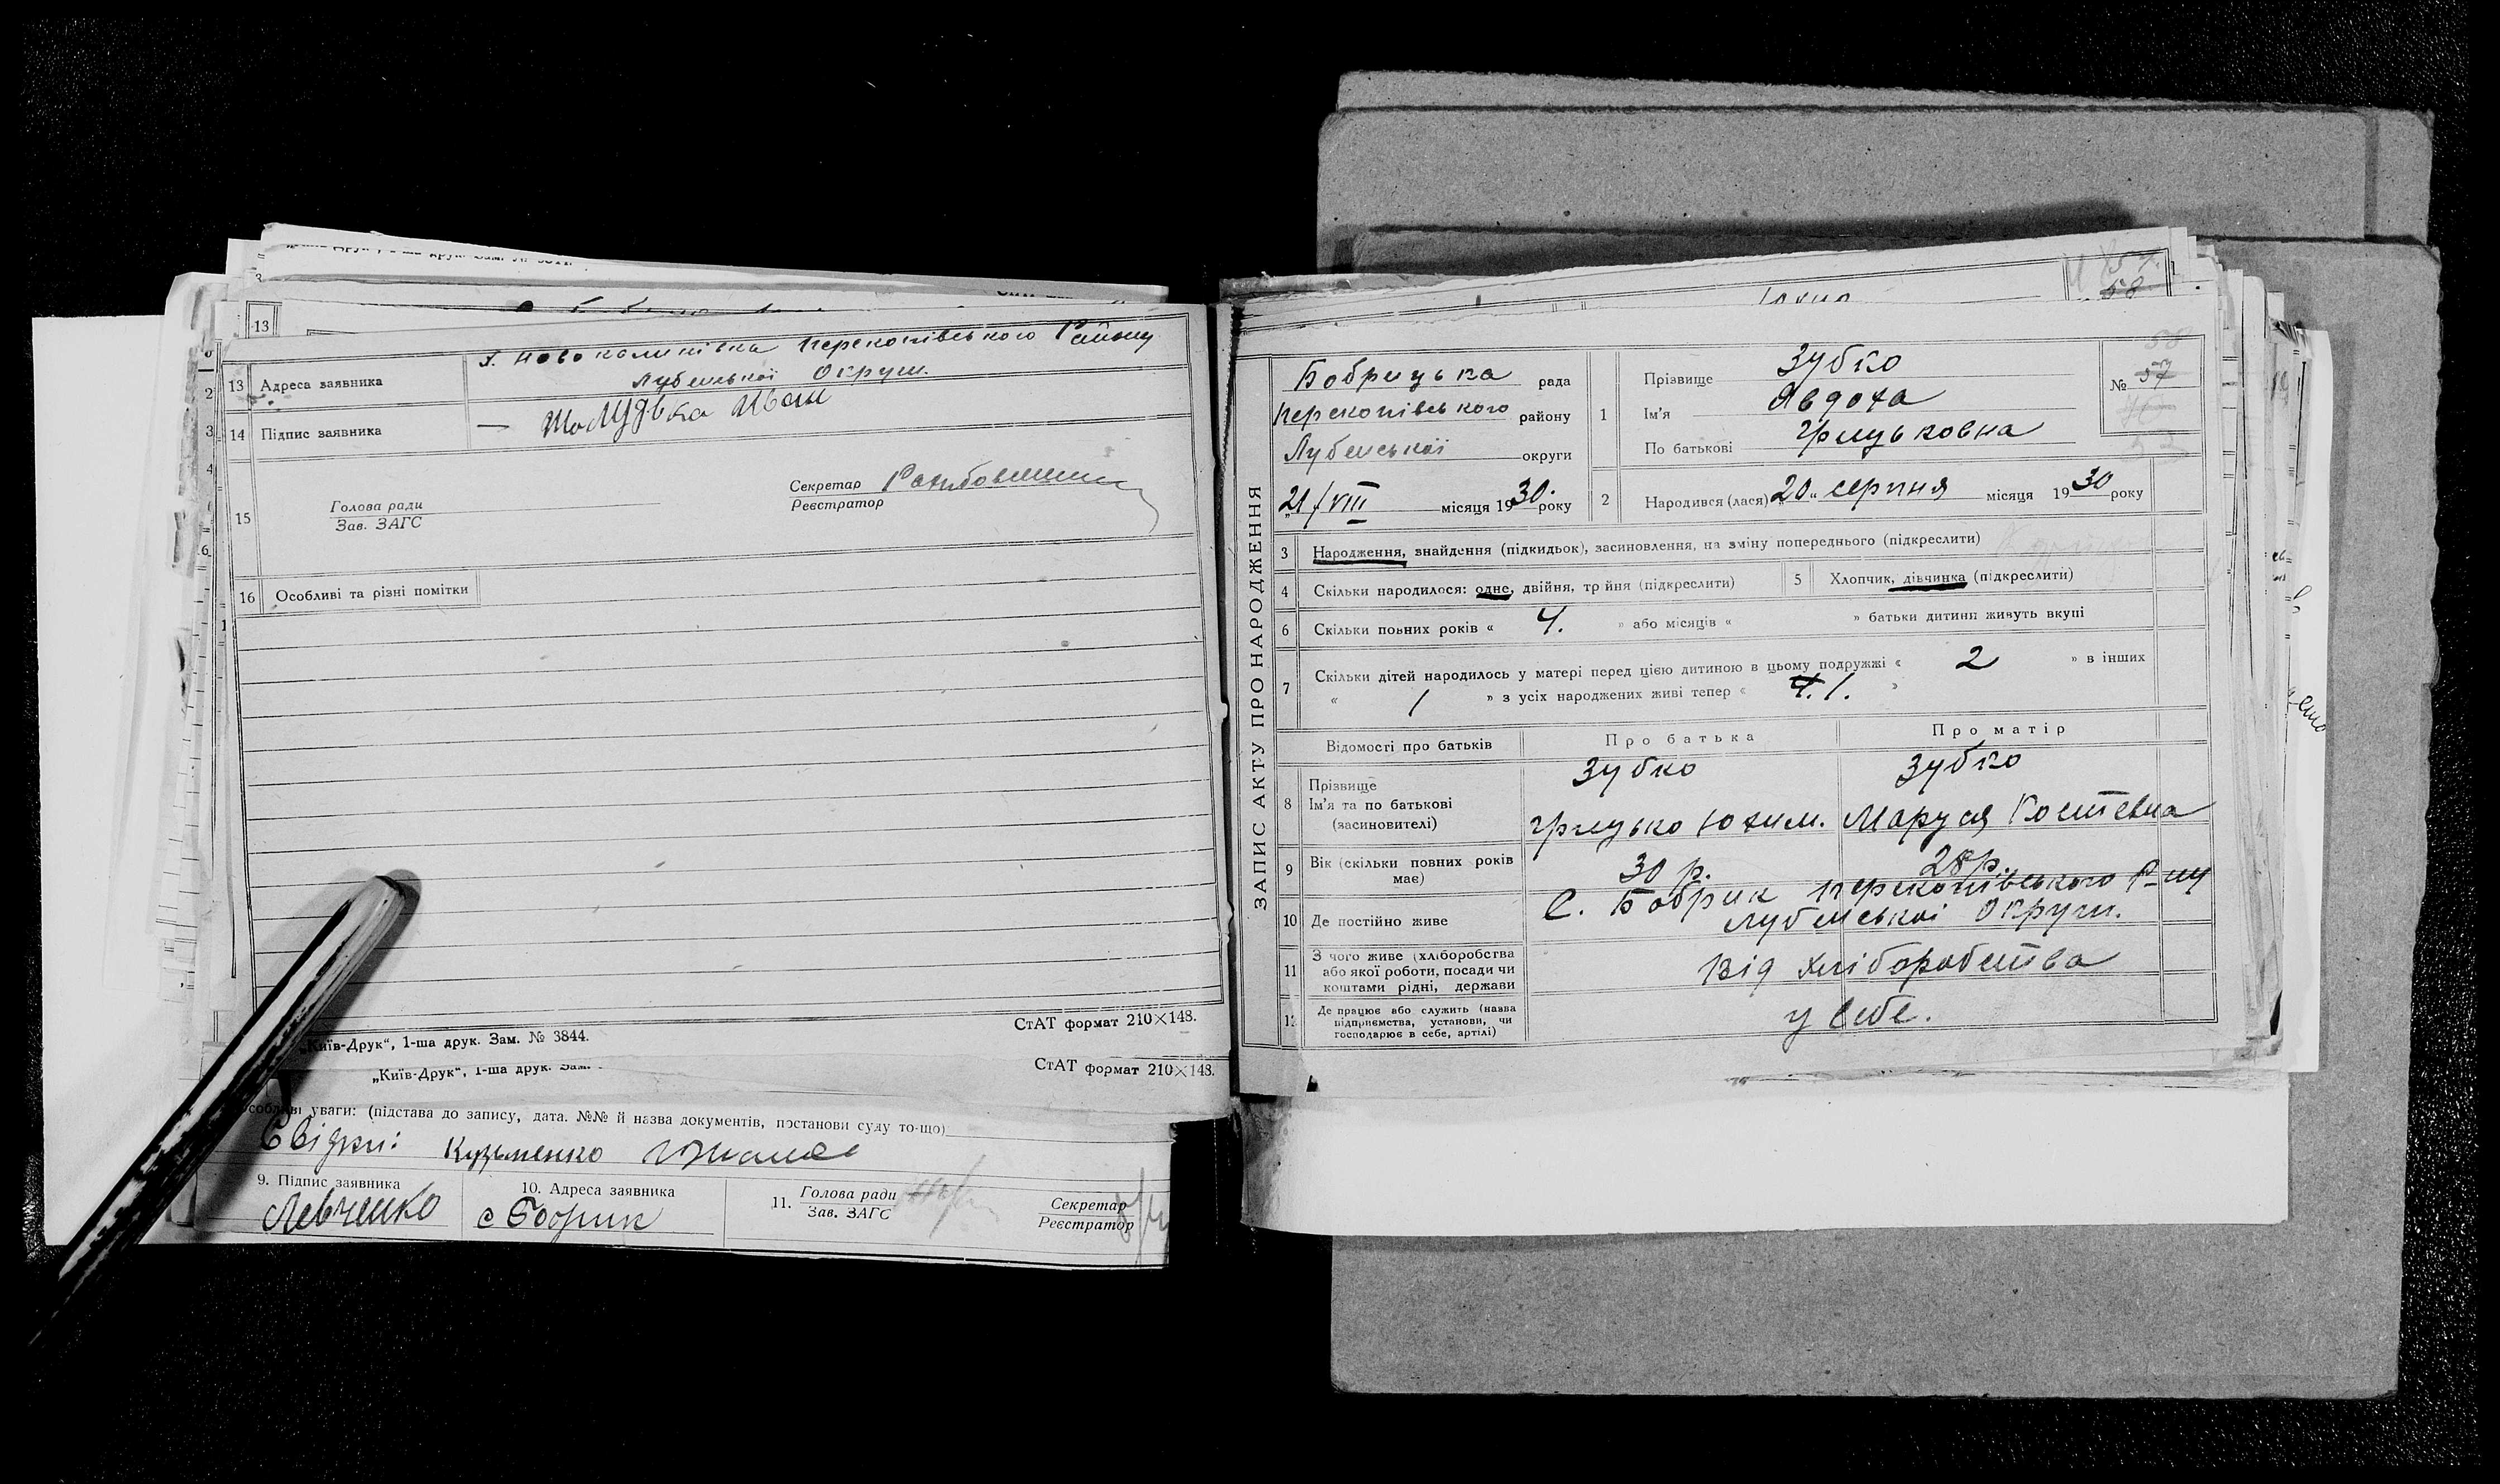 13
х. Новокалинівка Перекопівського Району
13 Адреса заявника
Лубенської Округи.
14 Підпис заявника — Шолудько Иван
15
Голова ради
Зав. ЗАГС
Секретар
Реєстратор
16 Особливі та різні помітки
„Київ-Друк“, 1-ша друк. Зам. № 3844.
СтАТ формат 210×148.
„Київ-Друк“, 1-ша друк. Зам.
СтАТ формат 210×148.
Особливі уваги: (підстава до запису, дата. №№ й назва документів, постанови суду то-що)
Свідки: Кузьменко
9. Підпис заявника
Левченко
10. Адреса заявника
с Бобрик
11. Голова ради
Зав. ЗАГС
Секретар
Реєстратор
58
ЗАПИС АКТУ ПРО НАРОДЖЕННЯ
Бобрицька рада
Перекопівського району
Лубенської округи
„21/VIII місяця 1930. року
1
Прізвище Зубко
Ім'я Явдоха
По батькові Грицьковна
№ 57
58
2 Народився (лася) „20“ серпня місяця 1930 року
3 Народження, знайдення (підкидьок), засиновлення, на зміну попереднього (підкреслити)
4 Скільки народилося: одне, двійня, тройня (підкреслити)
5 Хлопчик, дівчинка (підкреслити)
6 Скільки повних років « 4. » або місяців « » батьки дитини живуть вкупі
7 Скільки дітей народилось у матері перед цією дитиною в цьому подружжі « 2 » в інших
« 1 » з усіх народжених живі тепер « 4. 1. »
Відомості про батьків
Про батька
Про матір
8 Прізвище
Ім'я та по батькові
(засиновителі)
Зубко
Грицько Юхим.
Зубко
Маруся Костевна
9 Вік (скільки повних років має)
30 р.
28 р.
10 Де постійно живе
С. Бобрик Перекопівського Р-ну
Лубенської Округи.
11 З чого живе (хліборобства
або якої роботи, посади чи
коштами рідні, держави
Від хліборобства
12 Де працює або служить (назва
підприємства, установи, чи
господарює в себе, артілі)
у себе.